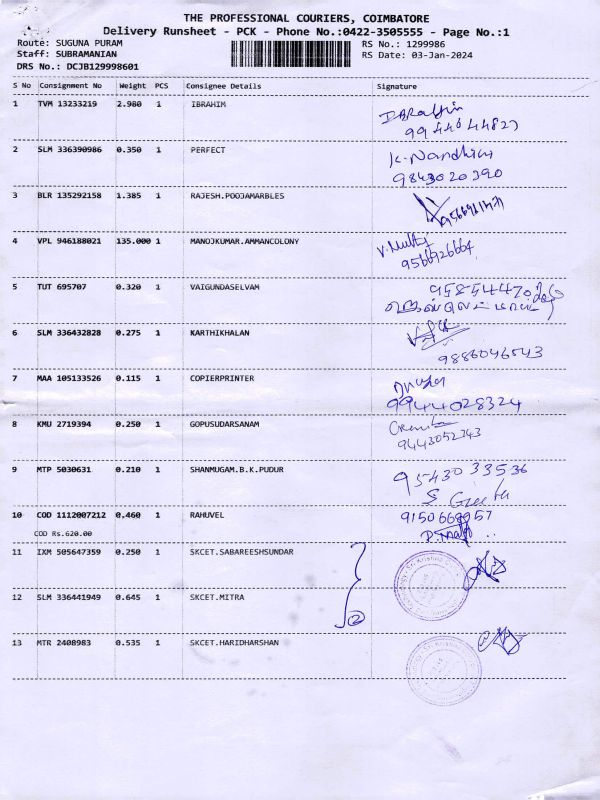 THE PROFESSIONAL COURIERS, COIMBATORE
Delivery Runsheet - PCK - Phone No.:0422-3505555 - Page No.:1
Route: SUGUNA PURAM
RS No.: 1299986
Staff: SUBRAMANIAN
RS Date: 03-Jan-2024
DRS No.: DCJB129998601
S No Consignment No Weight PCS Consignee Details Signature
1 TVM 13233219 2.980 1 IBRAHIM
9944644827
2 SLM 336390986 0.350 1 PERFECT K. Nandhini
9843020390
3 BLR 135292158 1.385 1 RAJESH.POOJAMARBLES
4 VPL 946188021 135.000 1 MANOJKUMAR.AMMANCOLONY
9566926664
5 TUT 695707 0.320 1 VAIGUNDASELVAM
6 SLM 336432828 0.275 1 KARTHIKHALAN
9886046543
7 MAA 105133526 0.115 1 COPIERPRINTER
9944028324
8 KMU 2719394 0.250 1 GOPUSUDARSANAM
9443052343
9 MTP 5030631 0.210 1 SHANMUGAM.B.K.PUDUR 9543033536
S Geetha
10 COD 1112007212 0.460 1 RAHUVEL
COD Rs.620.00
11 IXM 505647359 0.250 1 SKCET.SABAREESHSUNDAR
12 SLM 336441949 0.645 1 SKCET.MITRA
13 MTR 2408983 0.535 1 SKCET.HARIDHARSHAN